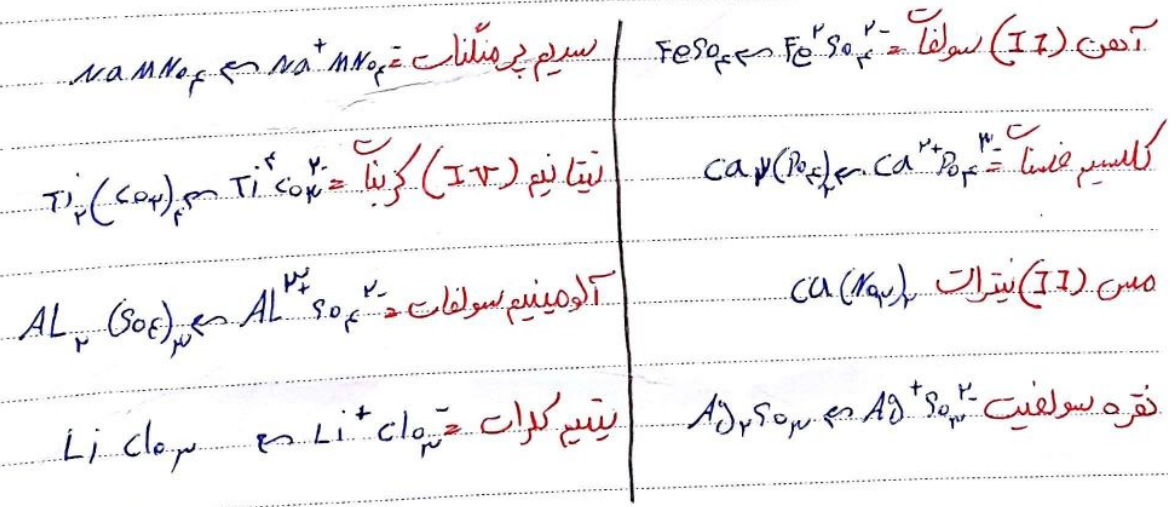 آهن (II) سولفات = Fe²SO₄²⁻ ⇒ FeSO₄
کلسیم فسفات = Ca²⁺PO₄³⁻ ⇒ Ca۲(PO₄)۲
مس (II) نیترات Cu(NO₃)₂
نقره سولفیت Ag⁺SO₃²⁻ ⇒ Ag₂SO₃
سدیم پرمنگنات = Na⁺MNO₄⁻ ⇒ NaMNO₄
تیتانیم (IV) کربنات = Ti⁴CO₃²⁻ ⇒ Ti₂(CO₃)₄
آلومینیم سولفات = AL³⁺SO₄²⁻ ⇒ AL₂(SO₄)₃
لیتیم کلرات = Li⁺ClO₃⁻ ⇒ LiClO₃